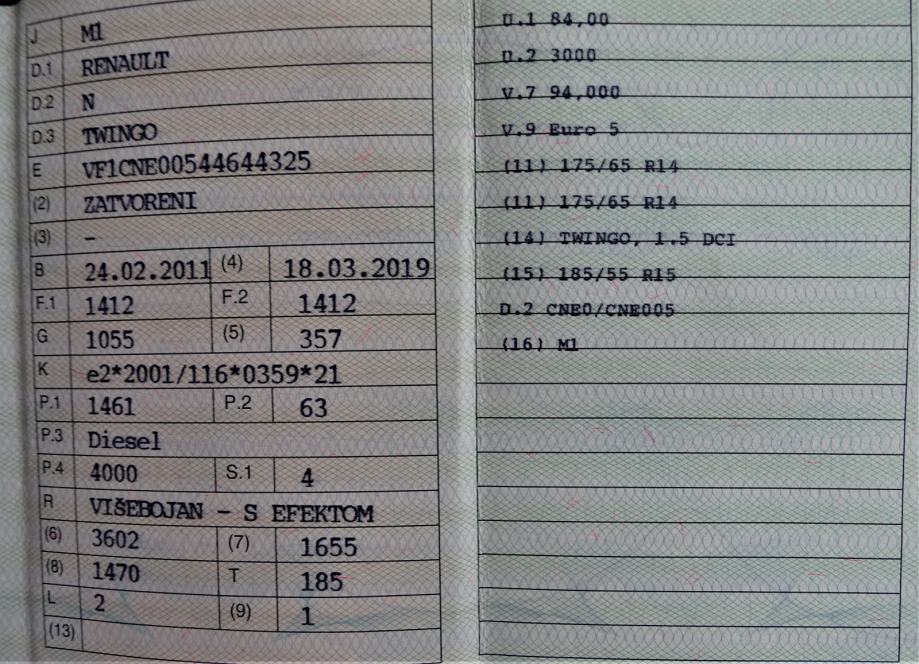 J M1
D.1 RENAULT
D.2 N
D.3 TWINGO
E VF1CNE00544644325
(2) ZATVORENI
(3) –
B 24.02.2011 (4) 18.03.2019
F.1 1412 F.2 1412
G 1055 (5) 357
K e2*2001/116*0359*21
P.1 1461 P.2 63
P.3 Diesel
P.4 4000 S.1 4
R VIŠEBOJAN – S EFEKTOM
(6) 3602 (7) 1655
(8) 1470 T 185
L 2 (9) 1
(13)
U.1 84,00
U.2 3000
V.7 94,000
V.9 Euro 5
(11) 175/65 R14
(11) 175/65 R14
(14) TWINGO, 1.5 DCI
(15) 185/55 R15
D.2 CNE0/CNE005
(16) M1